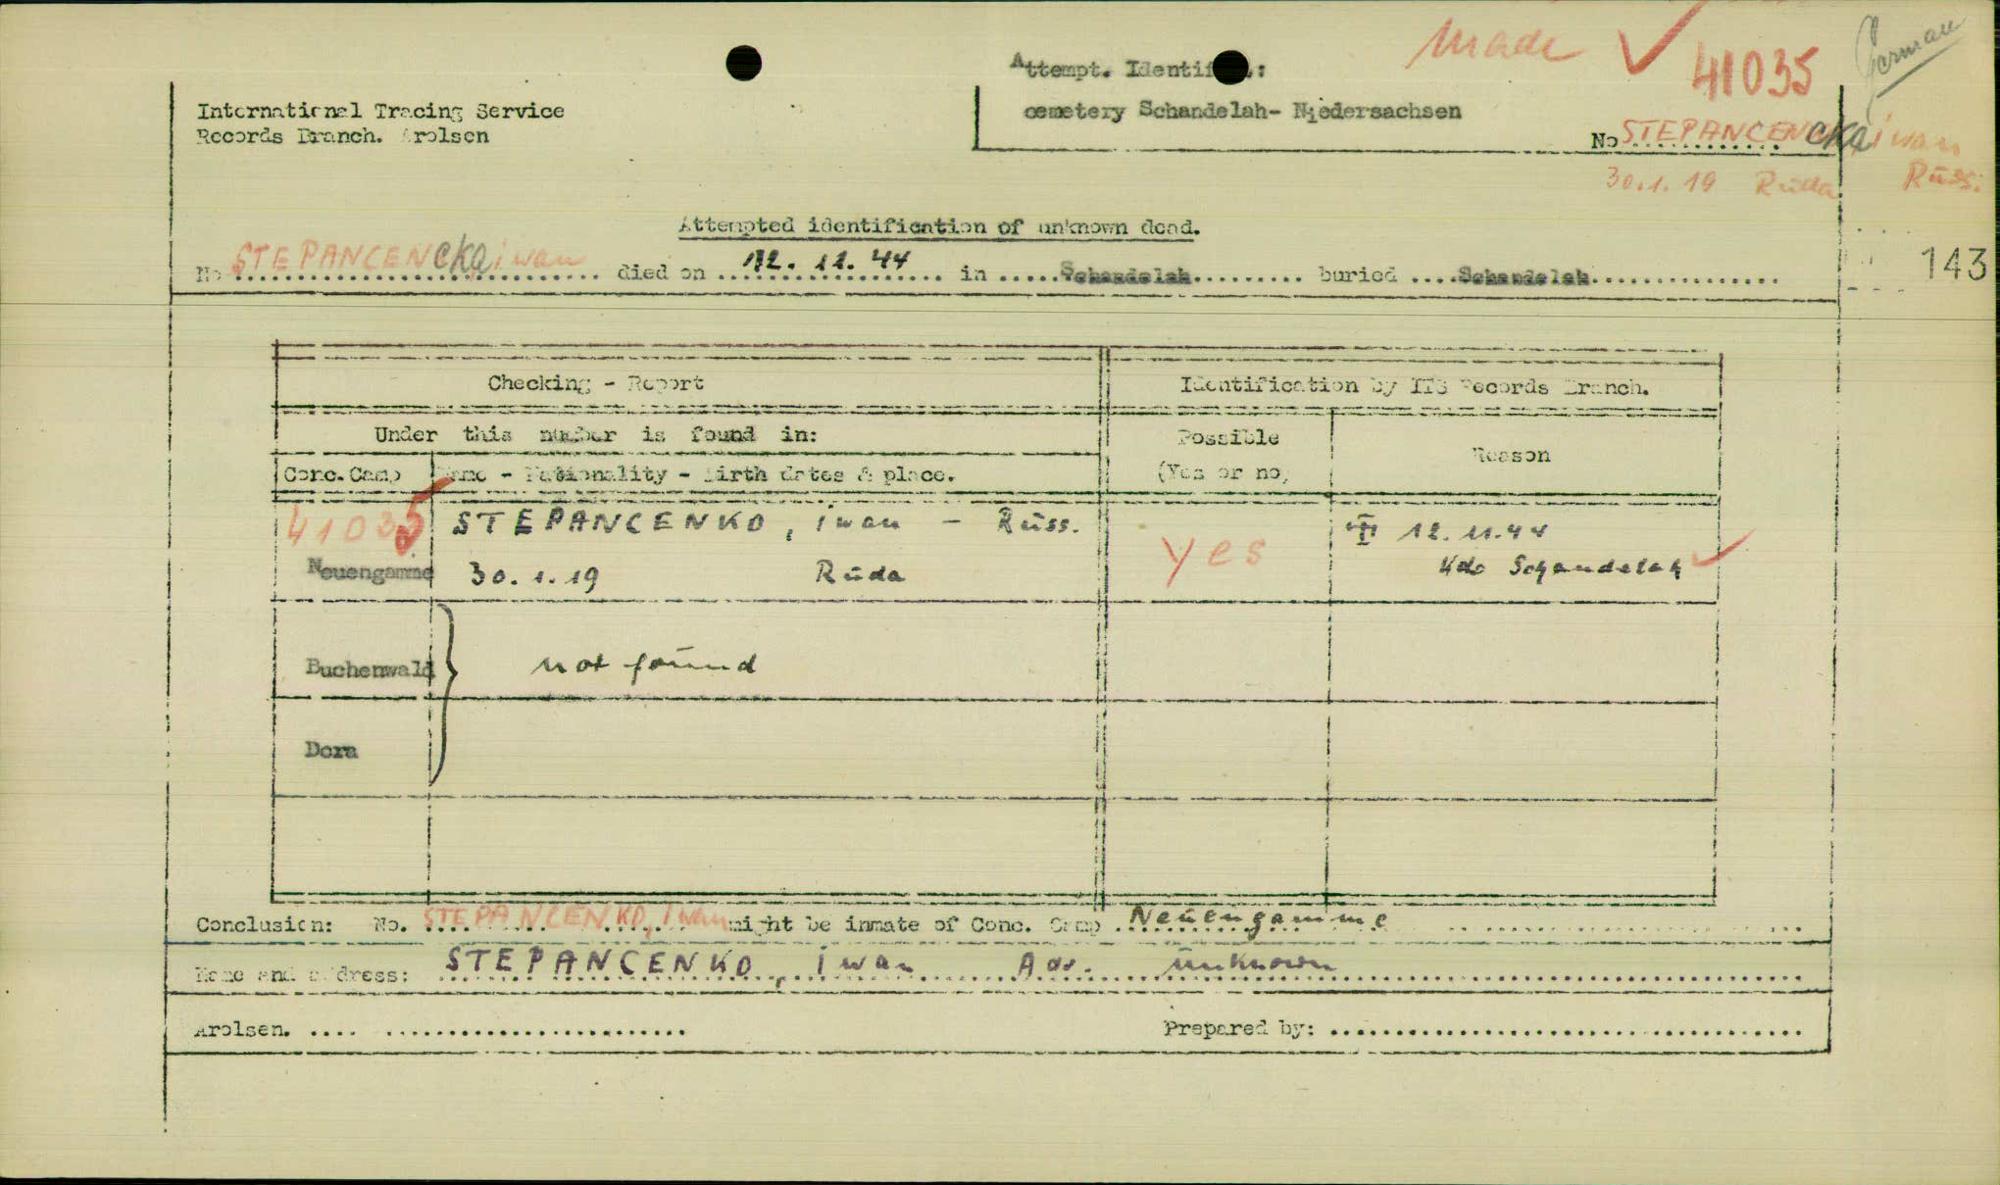 made ✓ 41035 German
Attempt. Identif.:
International Tracing Service
Records Branch. Arolsen
cemetery Schandelah- Niedersachsen
No STEPANCENCKA iwan
30.1.19 Rüda Rüss.
Attempted identification of unknown dead.
No STEPANCENCKA iwan died on 12. 11. 44 in Schandelah buried Schandelah
143
Checking - Report
Identification by ITS Records Branch.
Under this number is found in:
Possible
(Yes or no)
Reason
Conc. Camp Name - Nationality - Birth dates & place.
41035 STEPANCENKO, iwan - Rüss. yes 12.11.44
Neuengamme 30.1.19 Rüda Kdo Schandelah ✓
Buchenwald not found
Dora
Conclusion: No. STEPANCENKO, iwan might be inmate of Conc. Camp Neuengamme
Name and address: STEPANCENKO, iwan Adr. unknown
Arolsen. Prepared by: